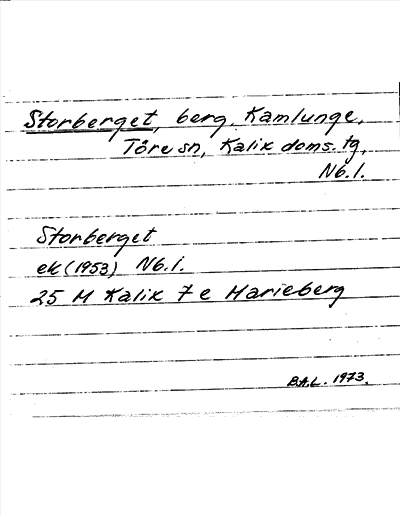 Storberget, berg. Kamlunge,
Töre sn, Kalix doms. tg,
Nb.l.
Storberget
ek (1953) Nb.l.
25 M Kalix 7 e Marieberg
B.A.L. 1973.